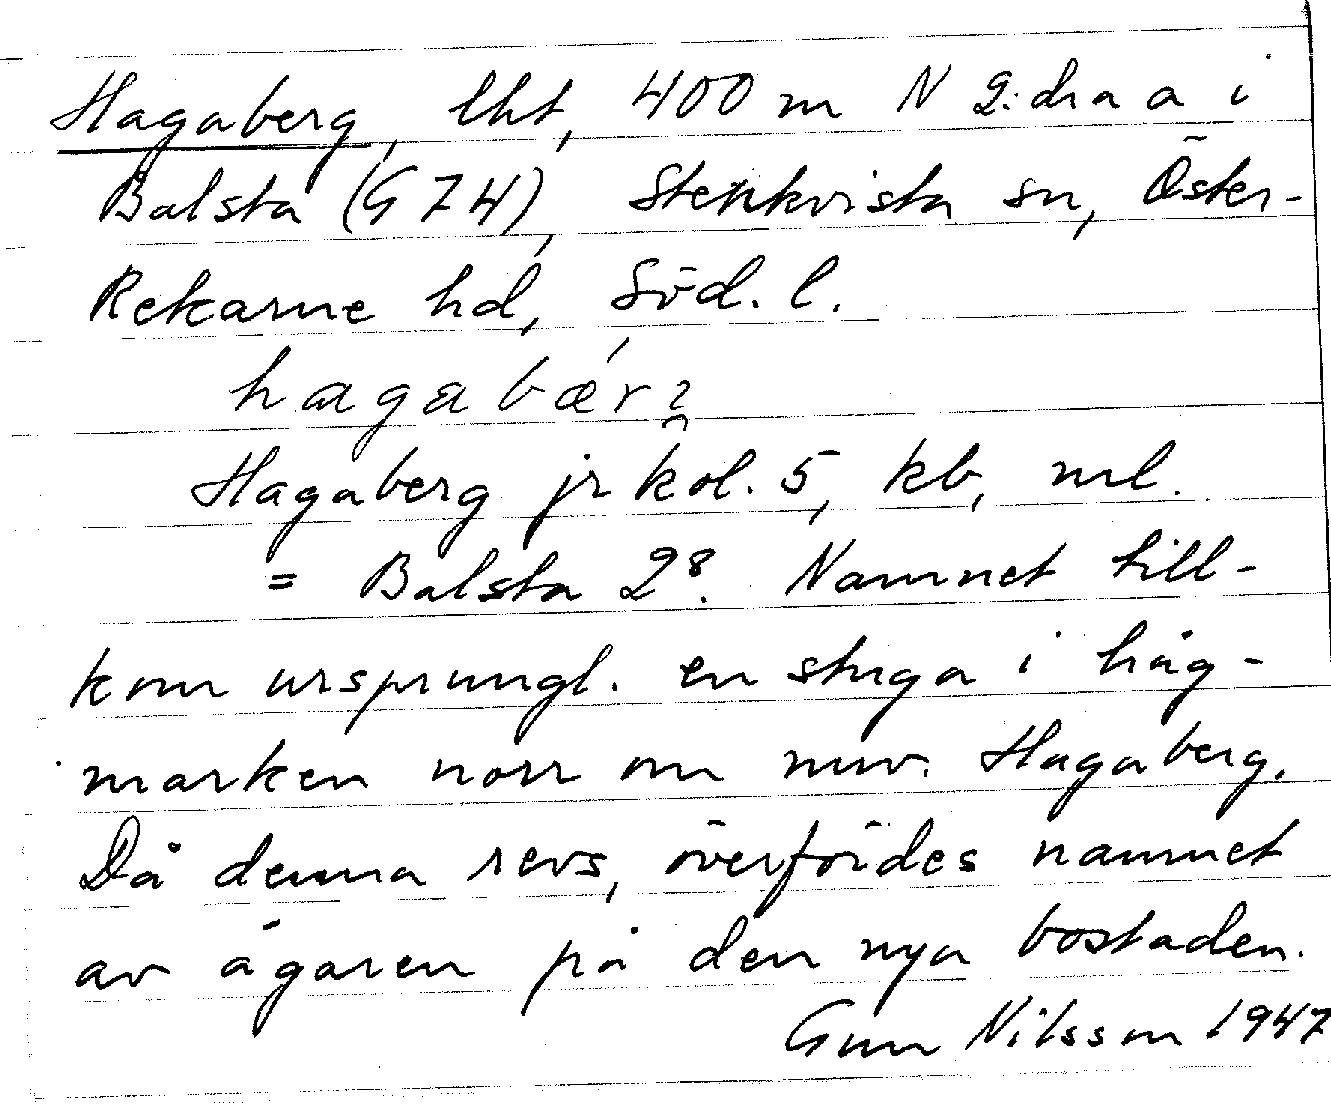 Hagaberg, lht, 400 m N 2:dra a i
Balsta (G 74), Stenkvista sn, Öster-
Rekarne hd, Söd. l.
Hagaberg jr kol. 5, kb, nrl.
= Balsta 2⁸. Namnet till-
kom ursprungl. en stuga i hag-
marken norr om nuv. Hagaberg.
Då denna revs, överfördes namnet
av ägaren på den nya bostaden.
Gun Nilsson 1947